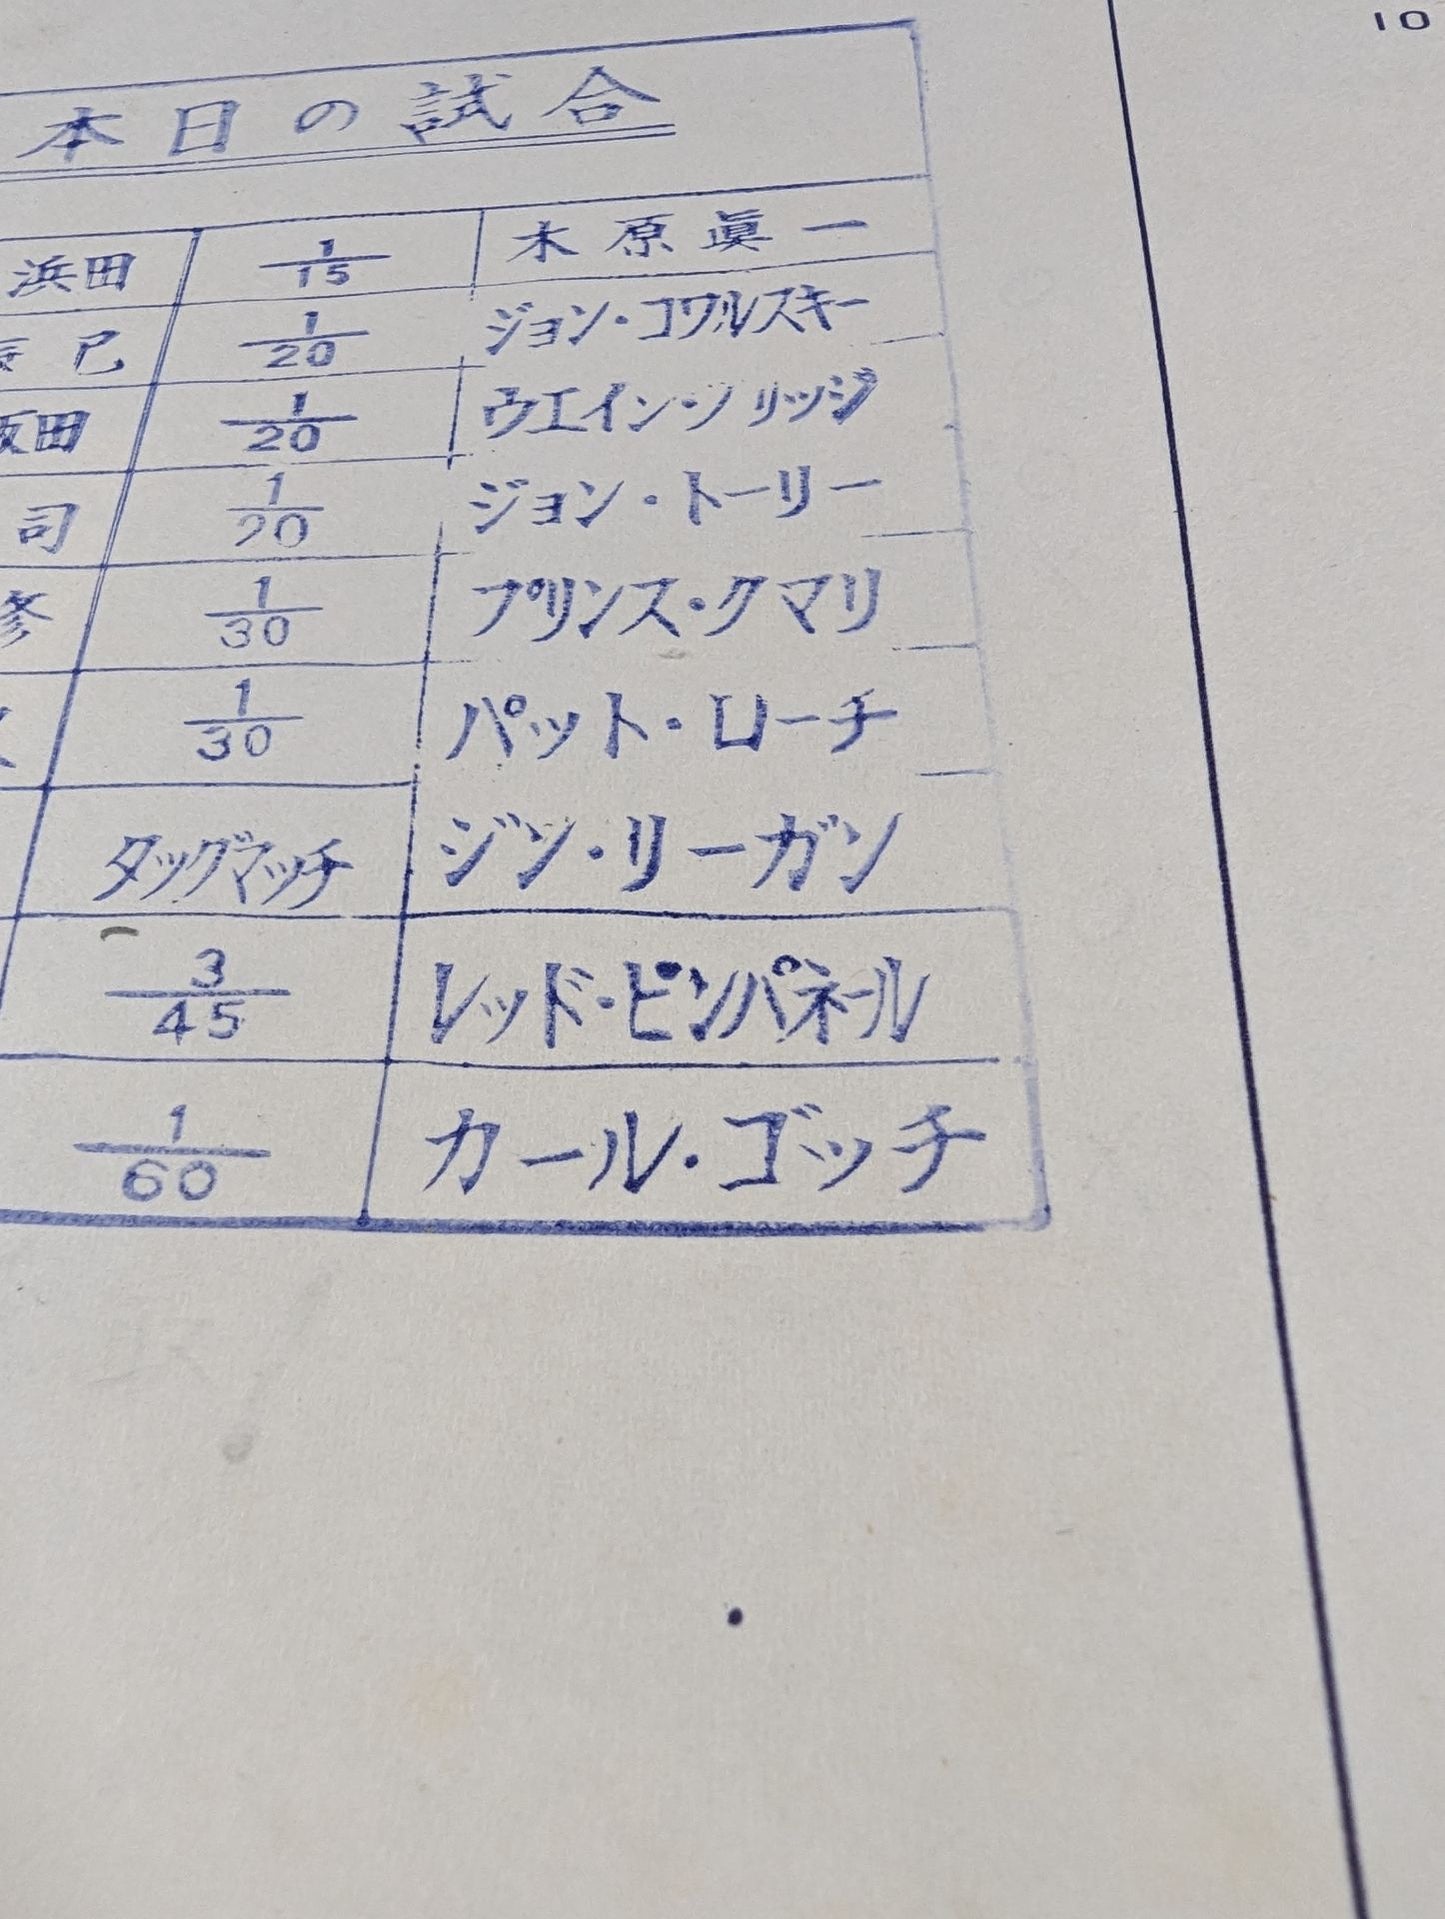 10
本日の試合
浜田 1/15 木原眞一
辰巳 1/20 ジョン・コワルスキー
飯田 1/20 ウエイン・ブリッジ
司 1/20 ジョン・トーリー
修 1/30 プリンス・クマリ
1/30 パット・ローチ
タッグマッチ ジン・リーガン
3/45 レッド・ピンパネール
1/60 カール・ゴッチ